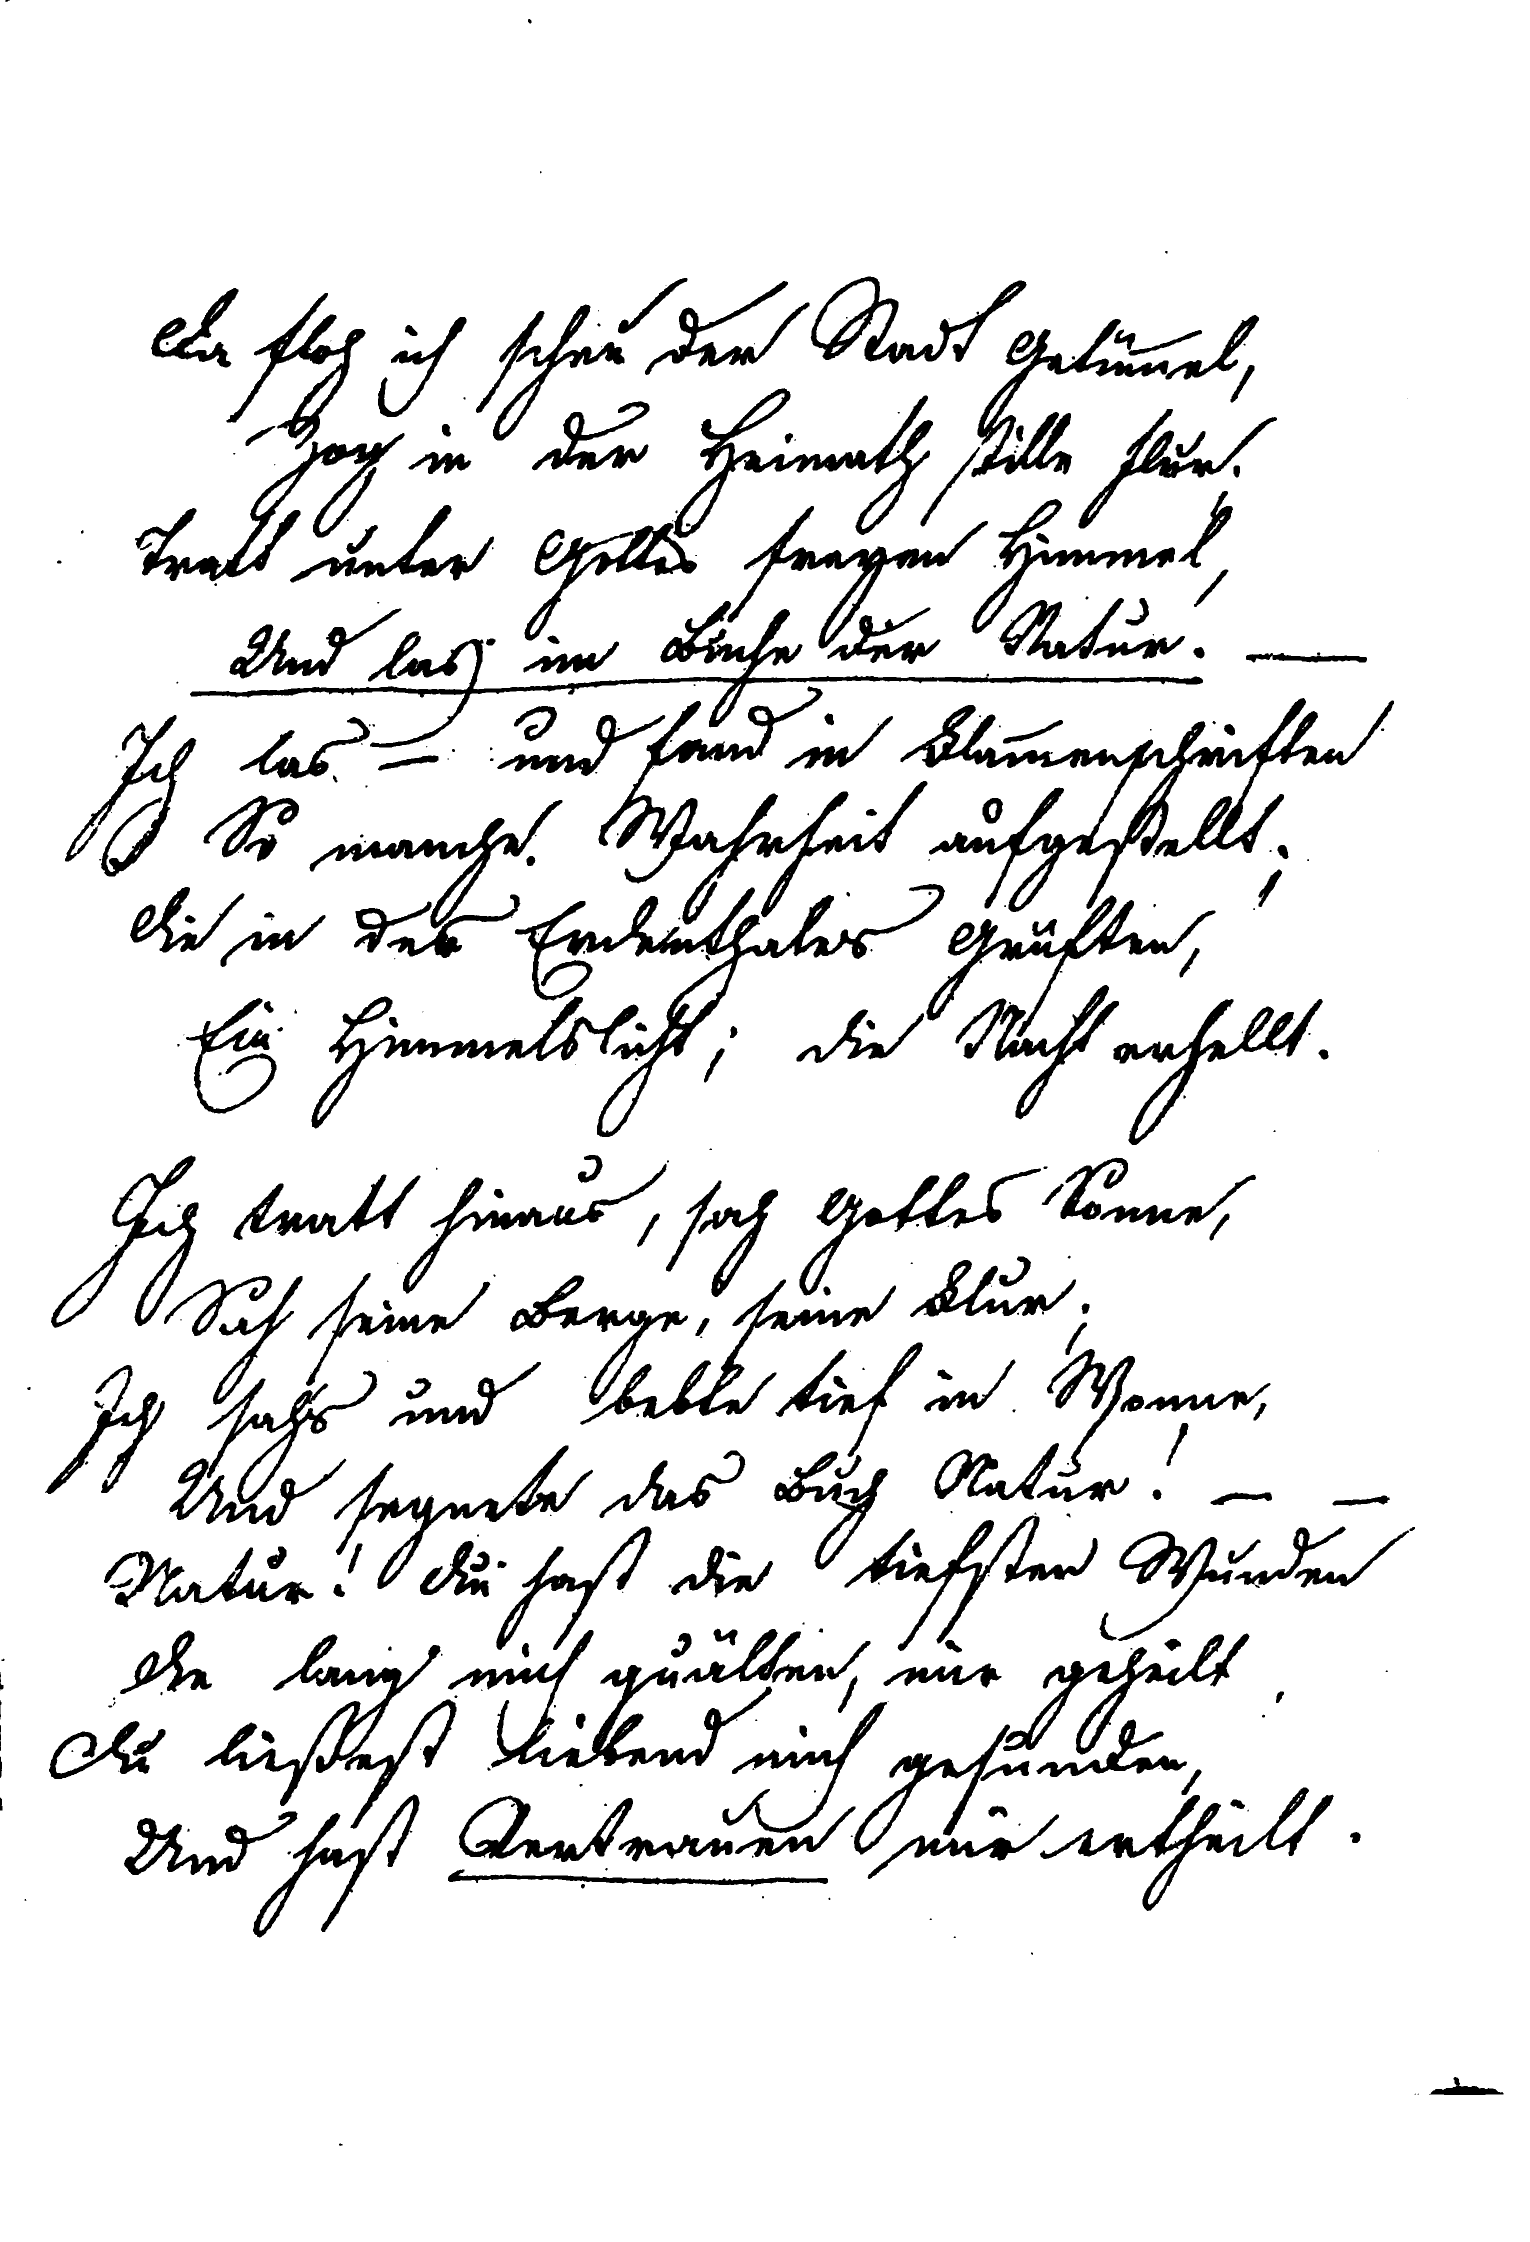 Da floh ich scheu der Stadt Getümmel,
Zog in der Heimath stille Flur.
Tratt unter Gottes freyen Himmel,
Und las im Buche der Natur. —
Ich las — und fand in Blumenschriften
So manche Wahrheit aufgestellt;
Die in des Erdenthales Grüften,
Ein Himmelslicht; die Nacht erhellt.
Ich tratt hinaus, sah Gottes Sonne,
Sah seine Berge, seine Flur;
Ich sahs und bebte tief in Wonne,
Und segnete das Buch Natur! — —
Natur! Du hast die tiefsten Wunden
Die lang mich quälten, mir geheilt,
Du ließest liebend mich gesunden,
Und hast Vertrauen mir ertheilt.